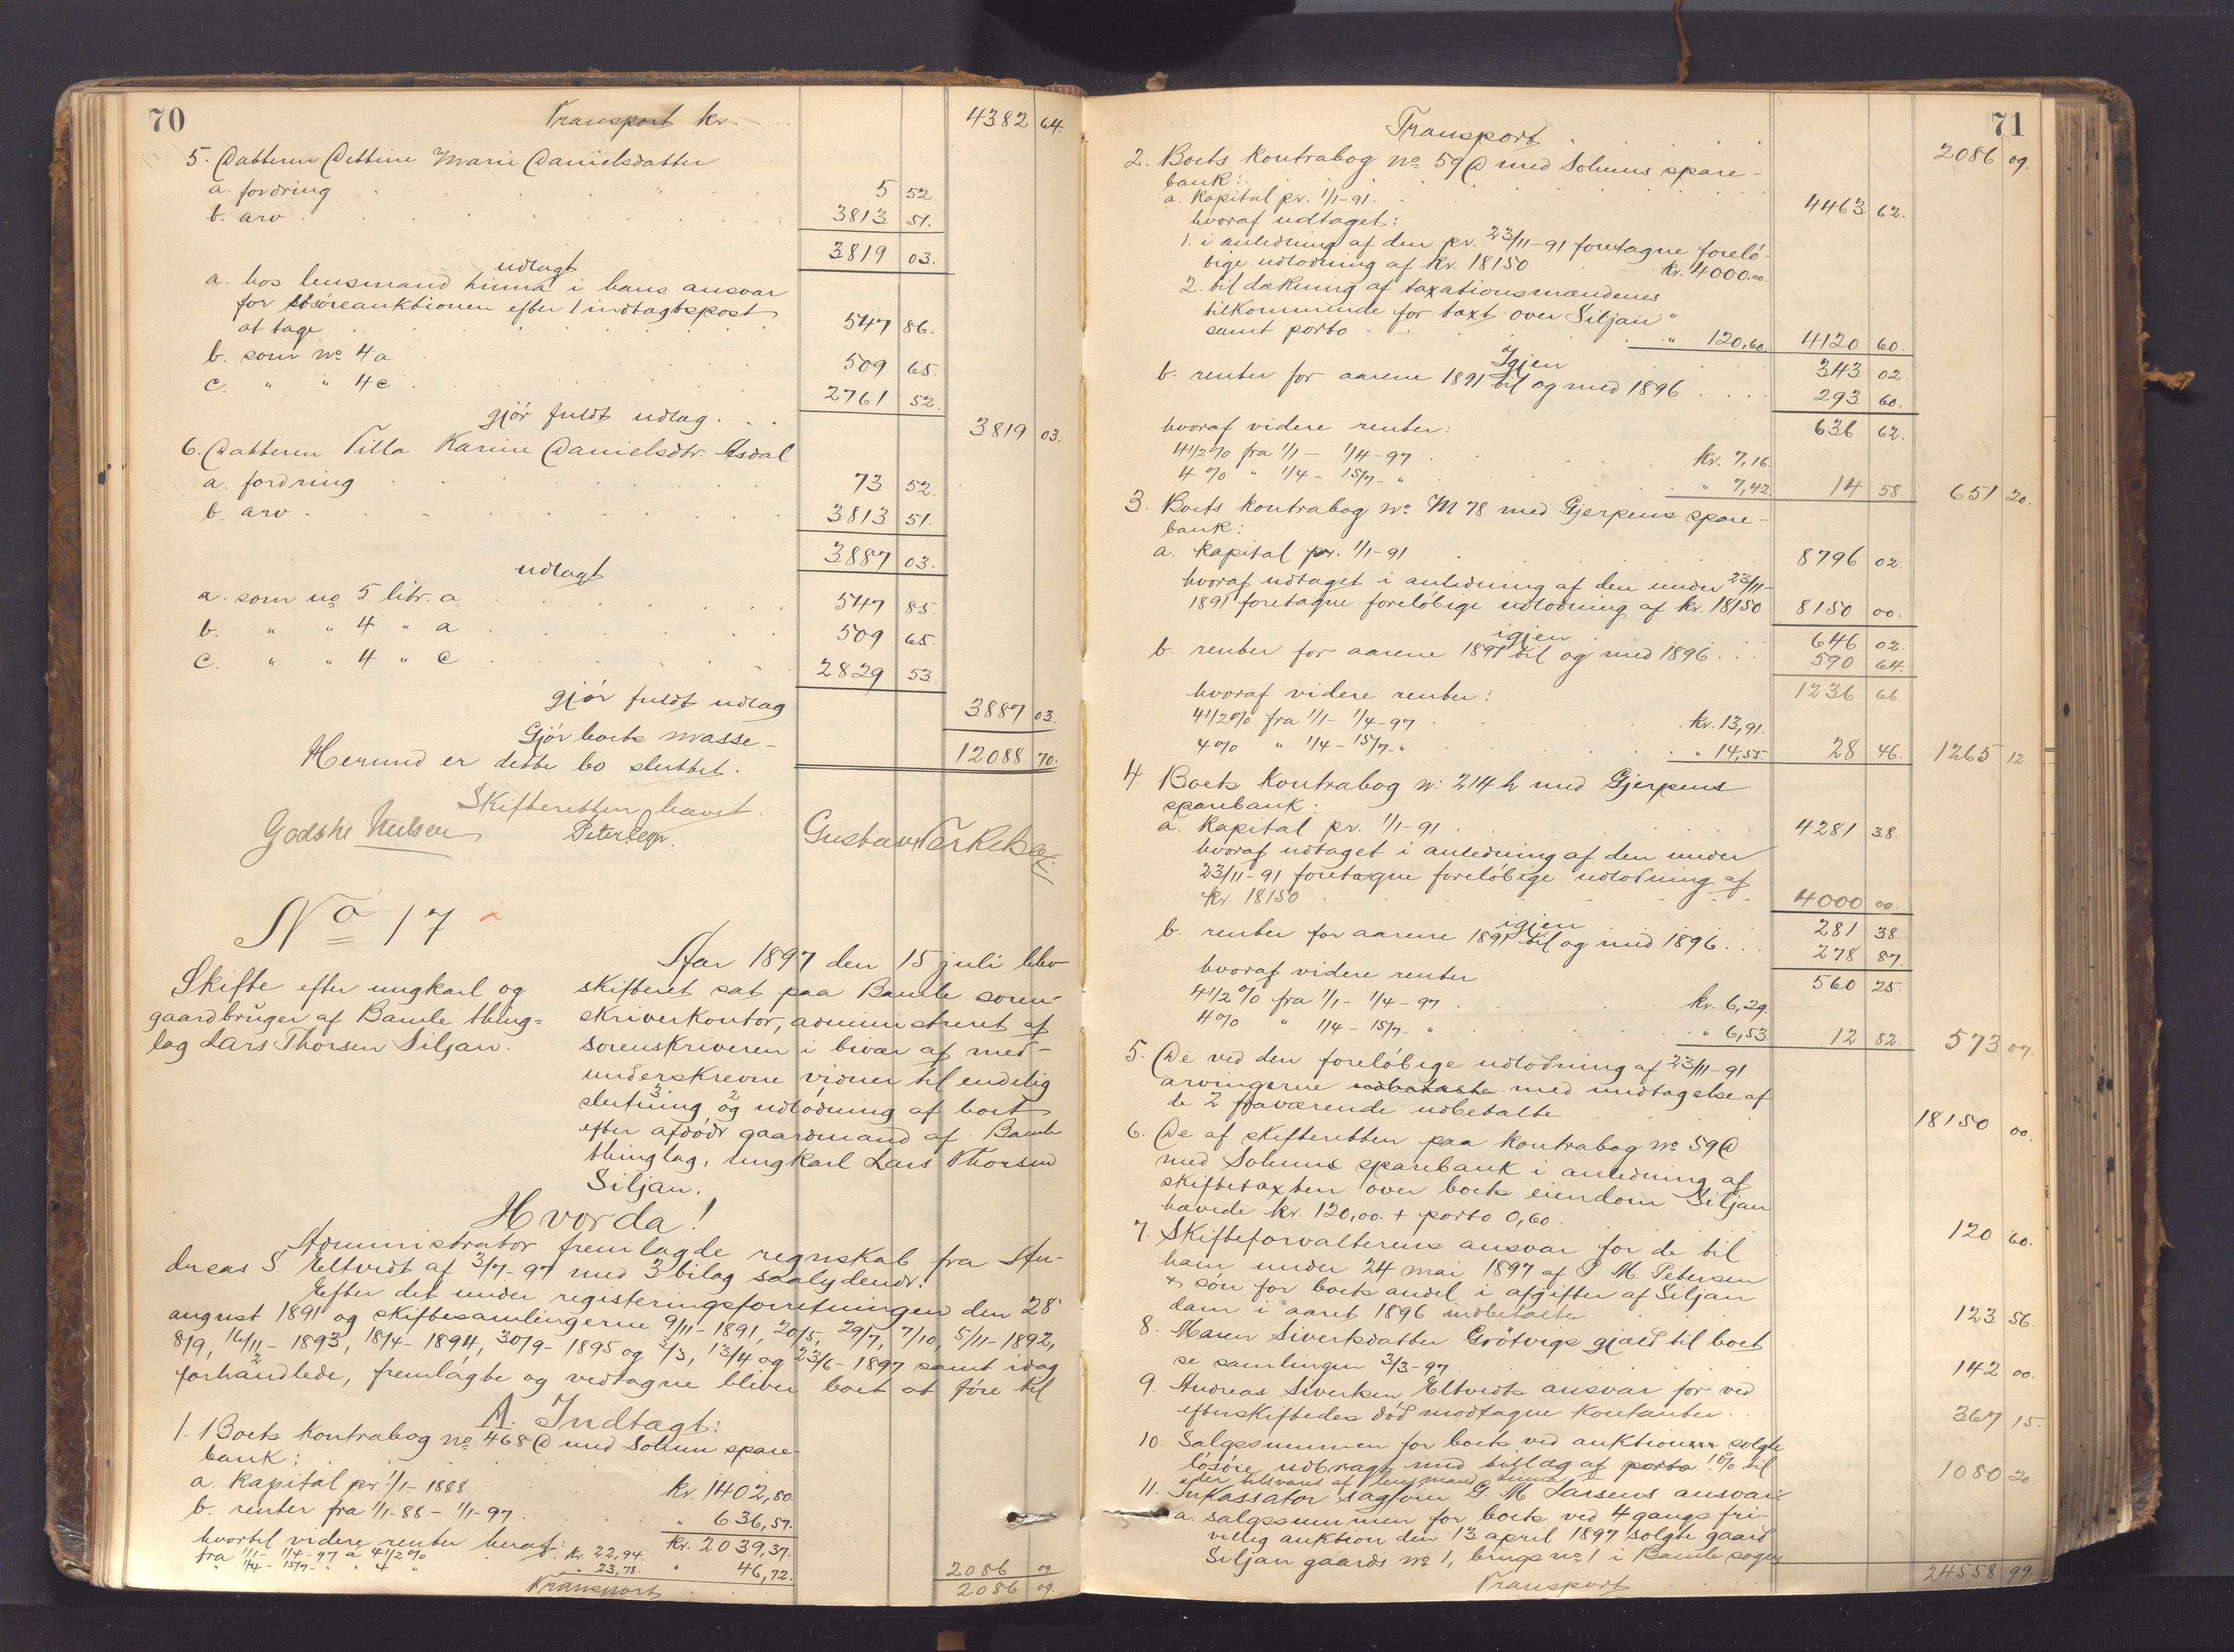 70
Transport kr. 4382 64.
5. Datteren Dettine Marie Danielsdatter
a. fordring 5 52.
b. arv 3813 51.
3819 03.
udlagt
a. hos lensmand hinna i hans ansvar
for løsøreauktionen efter 1 indtagtspost
at tage 547 86.
b. som no 4 a 509 65.
c. " " 4 c 2761 52.
gjør fuldt udlag. 3819 03.
6. Datteren Tilla Karine Danielsdtr. Aasdal
a. fordring 73 52.
b. arv 3813 51.
3887 03.
udlagt
a. som no 5 litr. a 547 85.
b. " " 4 " a 509 65.
c. " " 4 " c 2829 53.
gjør fuldt udlag 3887 03.
Gjør boets masse 12088 70.
Hermed er dette bo sluttet.
Skifteretten hævet.
Godske Nielsen Gustav Terkelsen
No 17
Skifte efter ungkarl og
gaardbruger af Bamle thing=
lag Lars Thorsen Siljan.
Aar 1897 den 15 juli blev
skifteret sat paa Bamle soren-
skriverkontor, administreret af
sorenskriveren i bivær af med-
underskrevne vidner til endelig
slutning og udlodning af boet
efter afdøde gaardmand af Bamle
thinglag, ungkarl Lars Thorsen
Siljan.
Hvorda!
Administrator fremlagde regnskab fra An-
dreas S. Eltvedt af 3/7-97 med 3 bilag saalydende:
Efter det under registreringsforretningen den 28
august 1891 og skiftesamlingerne 9/11-1891, 20/5, 29/7, 7/10, 5/11-1892,
8/9, 16/11-1893, 18/4-1894, 30/9-1895 og 3/3, 13/4 og 23/6-1897 samt idag
forhandlede, fremlagte og vedtagne bliver boet at føre til
A. Indtægt:
1. Boets kontrabog no 468 D med Solum spare-
bank:
a. kapital pr. 1/1-1888 kr. 1402,80.
b. renter fra 1/1-88 - 1/1-97 " 636,57.
kr. 2039,37.
hvortil videre renter heraf:
fra 1/1 - 1/4-97 a 4 1/2 % kr. 22,94.
" 1/4 - 15/7 - " 4 " " 23,78. " 46,72. 2086 09
Transport 2086 09.
71
Transport 2086 09.
2. Boets kontrabog no 59 D med Solums spare-
bank:
a. kapital pr. 1/1-91 4463 62.
hvoraf udtaget:
1. i anledning af den pr. 23/11-91 foretagne forelø-
bige udlodning af kr. 18150 kr. 4000.00
2. til dækning af taxationsmændenes
tilkommende for taxt over Siljan "
samt porto " 120,60. 4120 60.
Igjen 343 02
b. renter for aarene 1891 til og med 1896 293 60.
hvoraf videre renter: 636 62.
4 1/2 % fra 1/1 - 1/4-97 kr. 7,16.
4 % " 1/4 - 15/7 - " " 7,42. 14 58. 651 20.
3. Boets kontrabog no M 78 med Gjerpens spare-
bank:
a. kapital pr. 1/1-91 8796 02.
hvoraf udtaget i anledning af den under 23/11-
1891 foretagne foreløbige udlodning af kr. 18150 8150 00.
igjen 646 02.
b. renter for aarene 1891 til og med 1896 590 64.
hvoraf videre renter: 1236 66
4 1/2 % fra 1/1 - 1/4-97 kr. 13,91.
4 % " 1/4 - 15/7 - " " 14,55. 28 46. 1265 12
4. Boets kontrabog no 214 h med Gjerpens
sparebank:
a. kapital pr. 1/1-91 4281 38.
hvoraf udtaget i anledning af den under
23/11-91 foretagne foreløbige udlodning af
kr. 18150 4000 00.
igjen 281 38.
b. renter for aarene 1891 til og med 1896 278 87.
hvoraf videre renter 560 25.
4 1/2 % fra 1/1 - 1/4-97 kr. 6,29.
4 % " 1/4 - 15/7 - " " 6,53. 12 82. 573 07.
5. De ved den foreløbige udlodning af 23/11-91
arvingerne udbetalte med undtagelse af
de 2 fraværende udbetalte 18150 00.
6. De af skifteretten paa kontrabog no 59 D
med Solums sparebank i anledning af
skiftetaxten over boets eiendom Siljan
hævede kr. 120,00. + porto 0,60. 120 60.
7. Skifteforvalterens ansvar for de til
ham under 24 mai 1897 af P. M. Petersen
& søn for boets andel i afgifter af Siljan
dam i aaret 1896 indbetalte 123 56.
8. Maren Sivertsdatter Grøtvigs gjæld til boet
se samlingen 3/3-97 142 00.
9. Andreas Sivertsen Eltvedts ansvar for ved
efterskiftedes død modtagne kontanter 367 15.
10. Salgssummen for boets ved auktionen solgte
løsøre udbragt med tillæg af porto 10% til
under tilsvars af lensmand hinna 1080 20.
11. Inkassator sagfører G. M. Larsens ansvar:
a. salgssummen for boets ved 4 gangs fri-
villig auktion den 13 april 1897 solgte gaard
Siljan gaards no 1, brugs no 1 i Bamle sogn
Transport 24558 99.